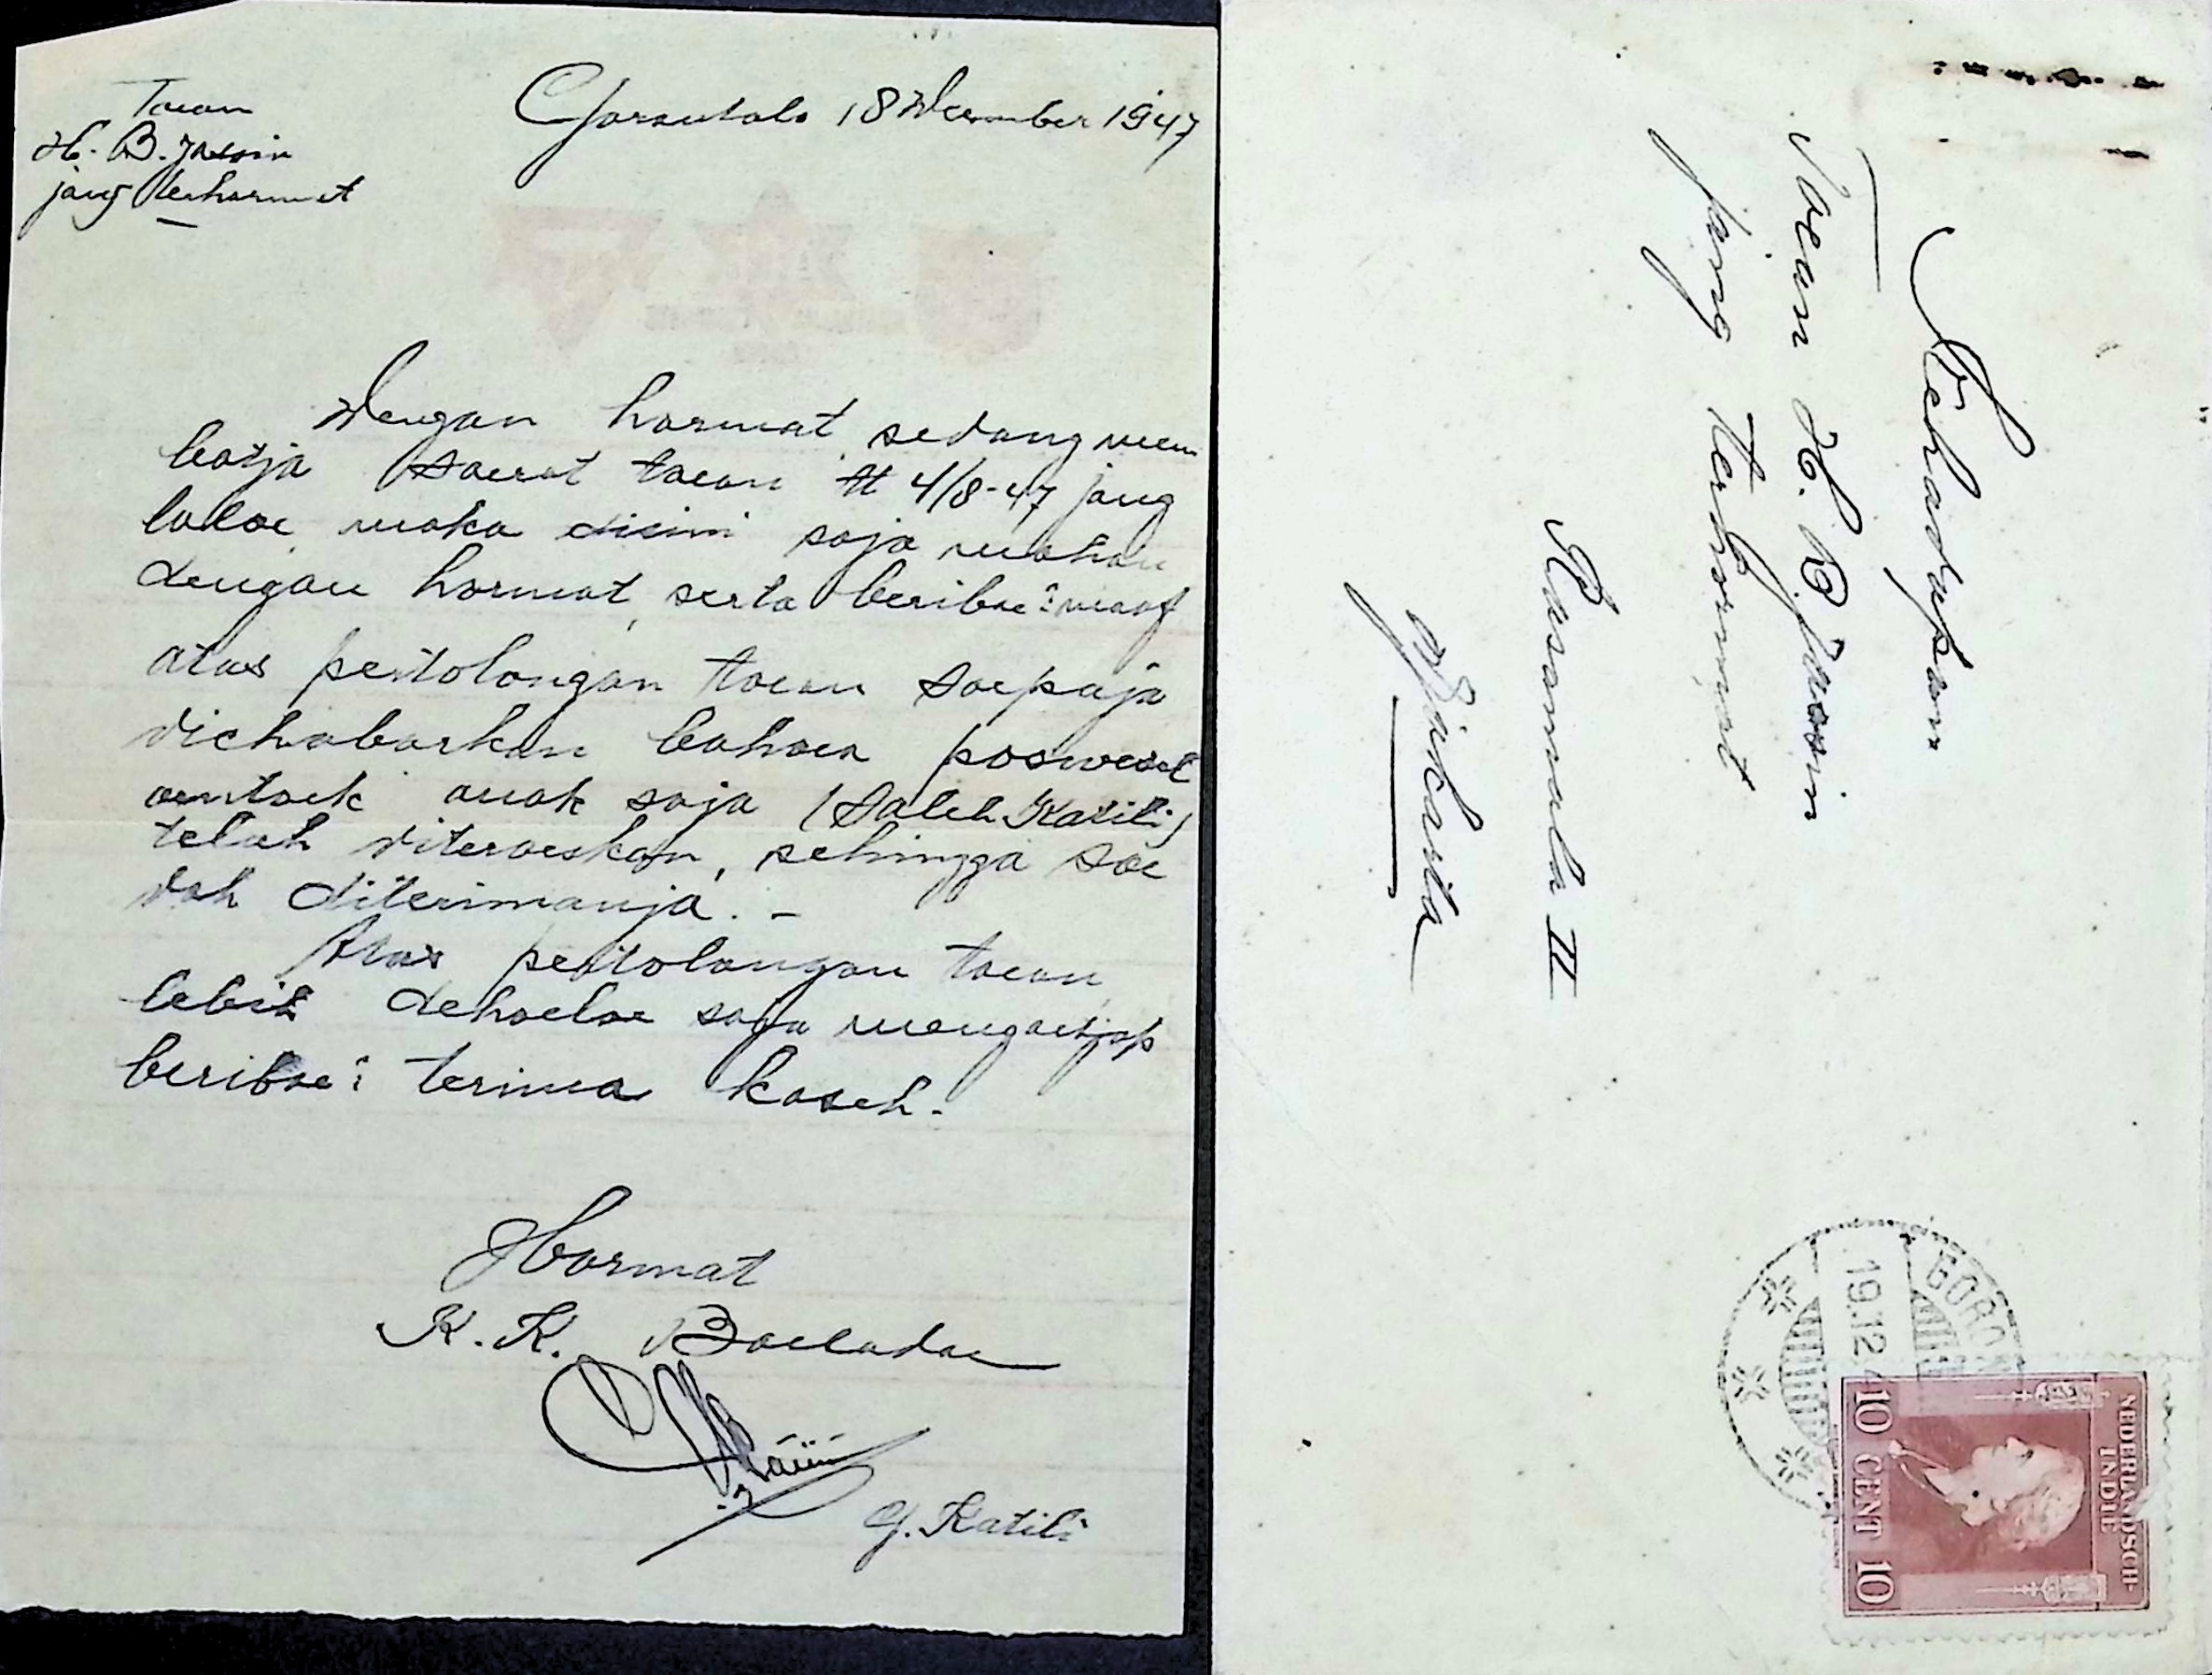 Toean
H. B. Jassin
jang terhormat
Gorontalo 18 December 1947
Dengan hormat, sedang mem
batja soerat toean tt 4/8-47 jang
laloe, maka disini saja mohon
dengan hormat, serta beriboe2 maaf
atas pertolongan toean soepaja
dichabarkan bahoea poswesel
oentoek anak saja (Saleh Katili)
telah diteroeskan, sehingga soe
dah diterimanja. -
Atas pertolongan toean
lebih dehoeloe saja mengoetjap
beriboe2 terima kaseh.
Hormat
K. K. Boeladoe
G. Katili
Kehadapan
Toean H. B. Jassin
jang terhormat
Kusomala II
Djakarta
GORO
19.12.4
NEDERLANDSCH-
INDIE
10 CENT 10